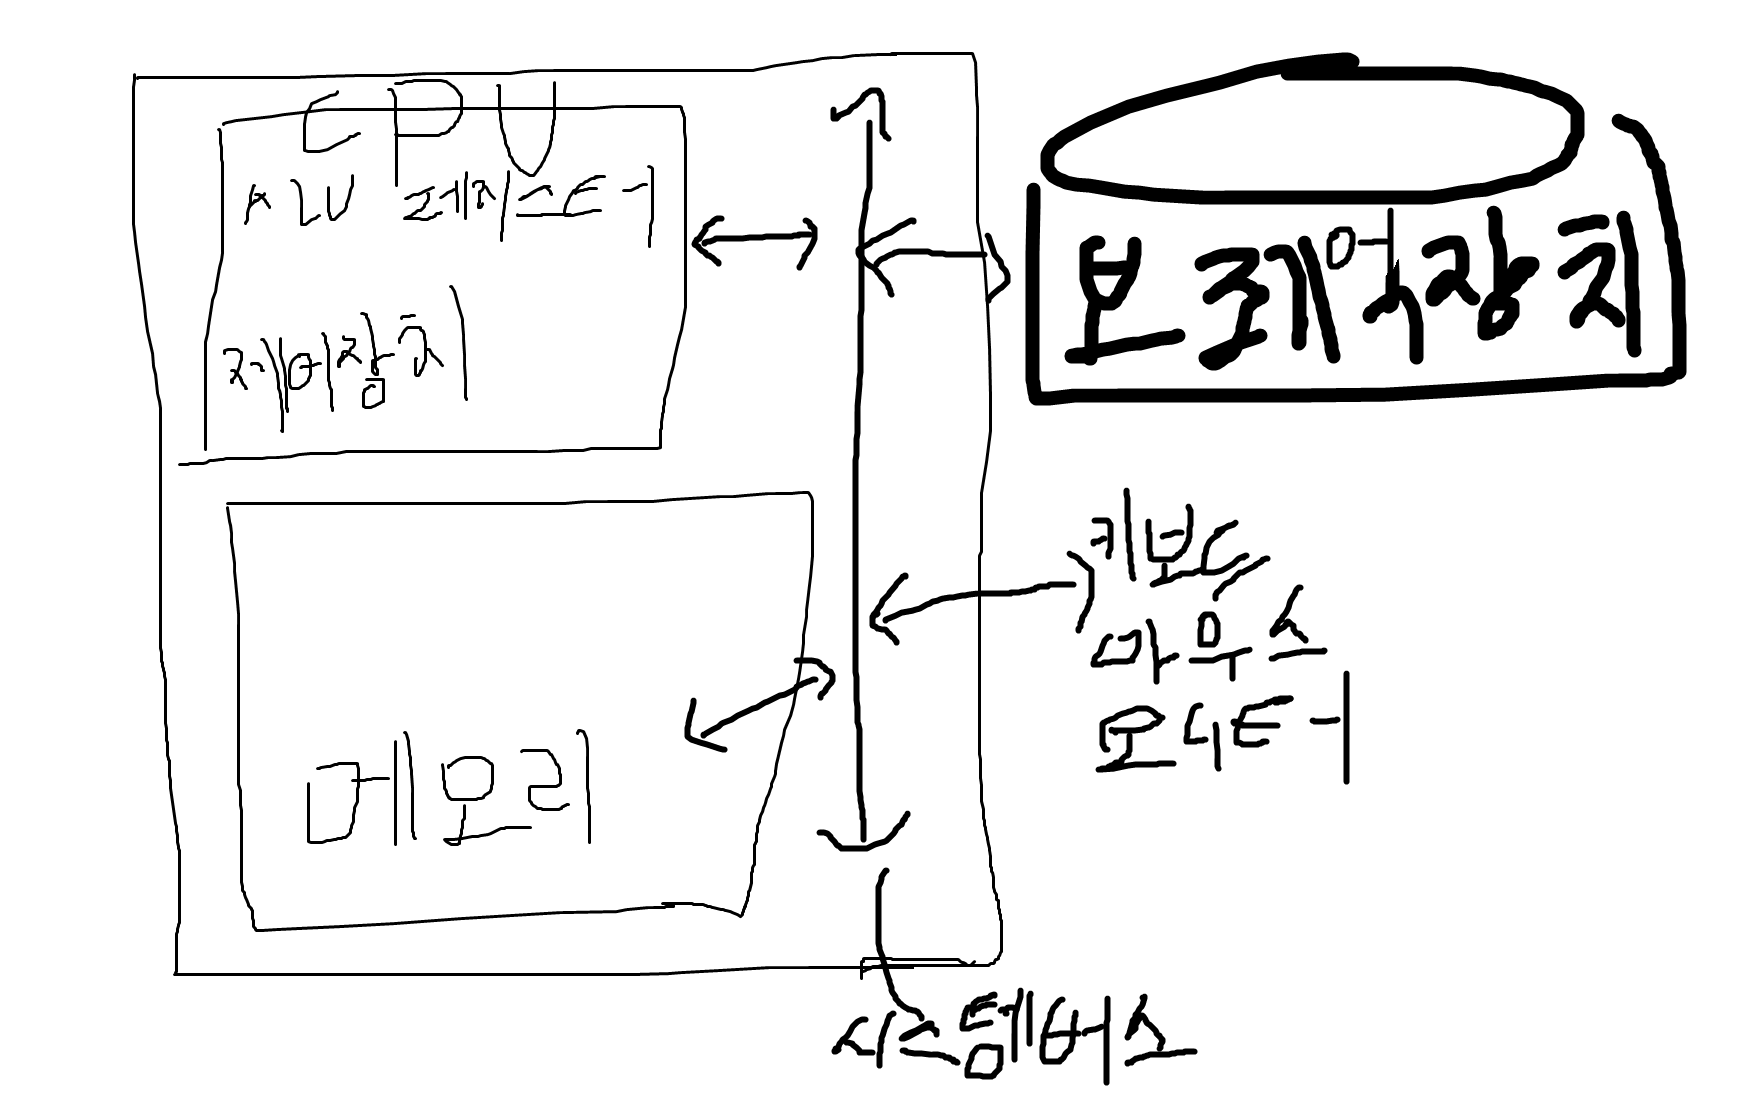 CPU
ALU 레지스터
제어장치
메모리
보조기억장치
키보드
마우스
모니터
시스템버스